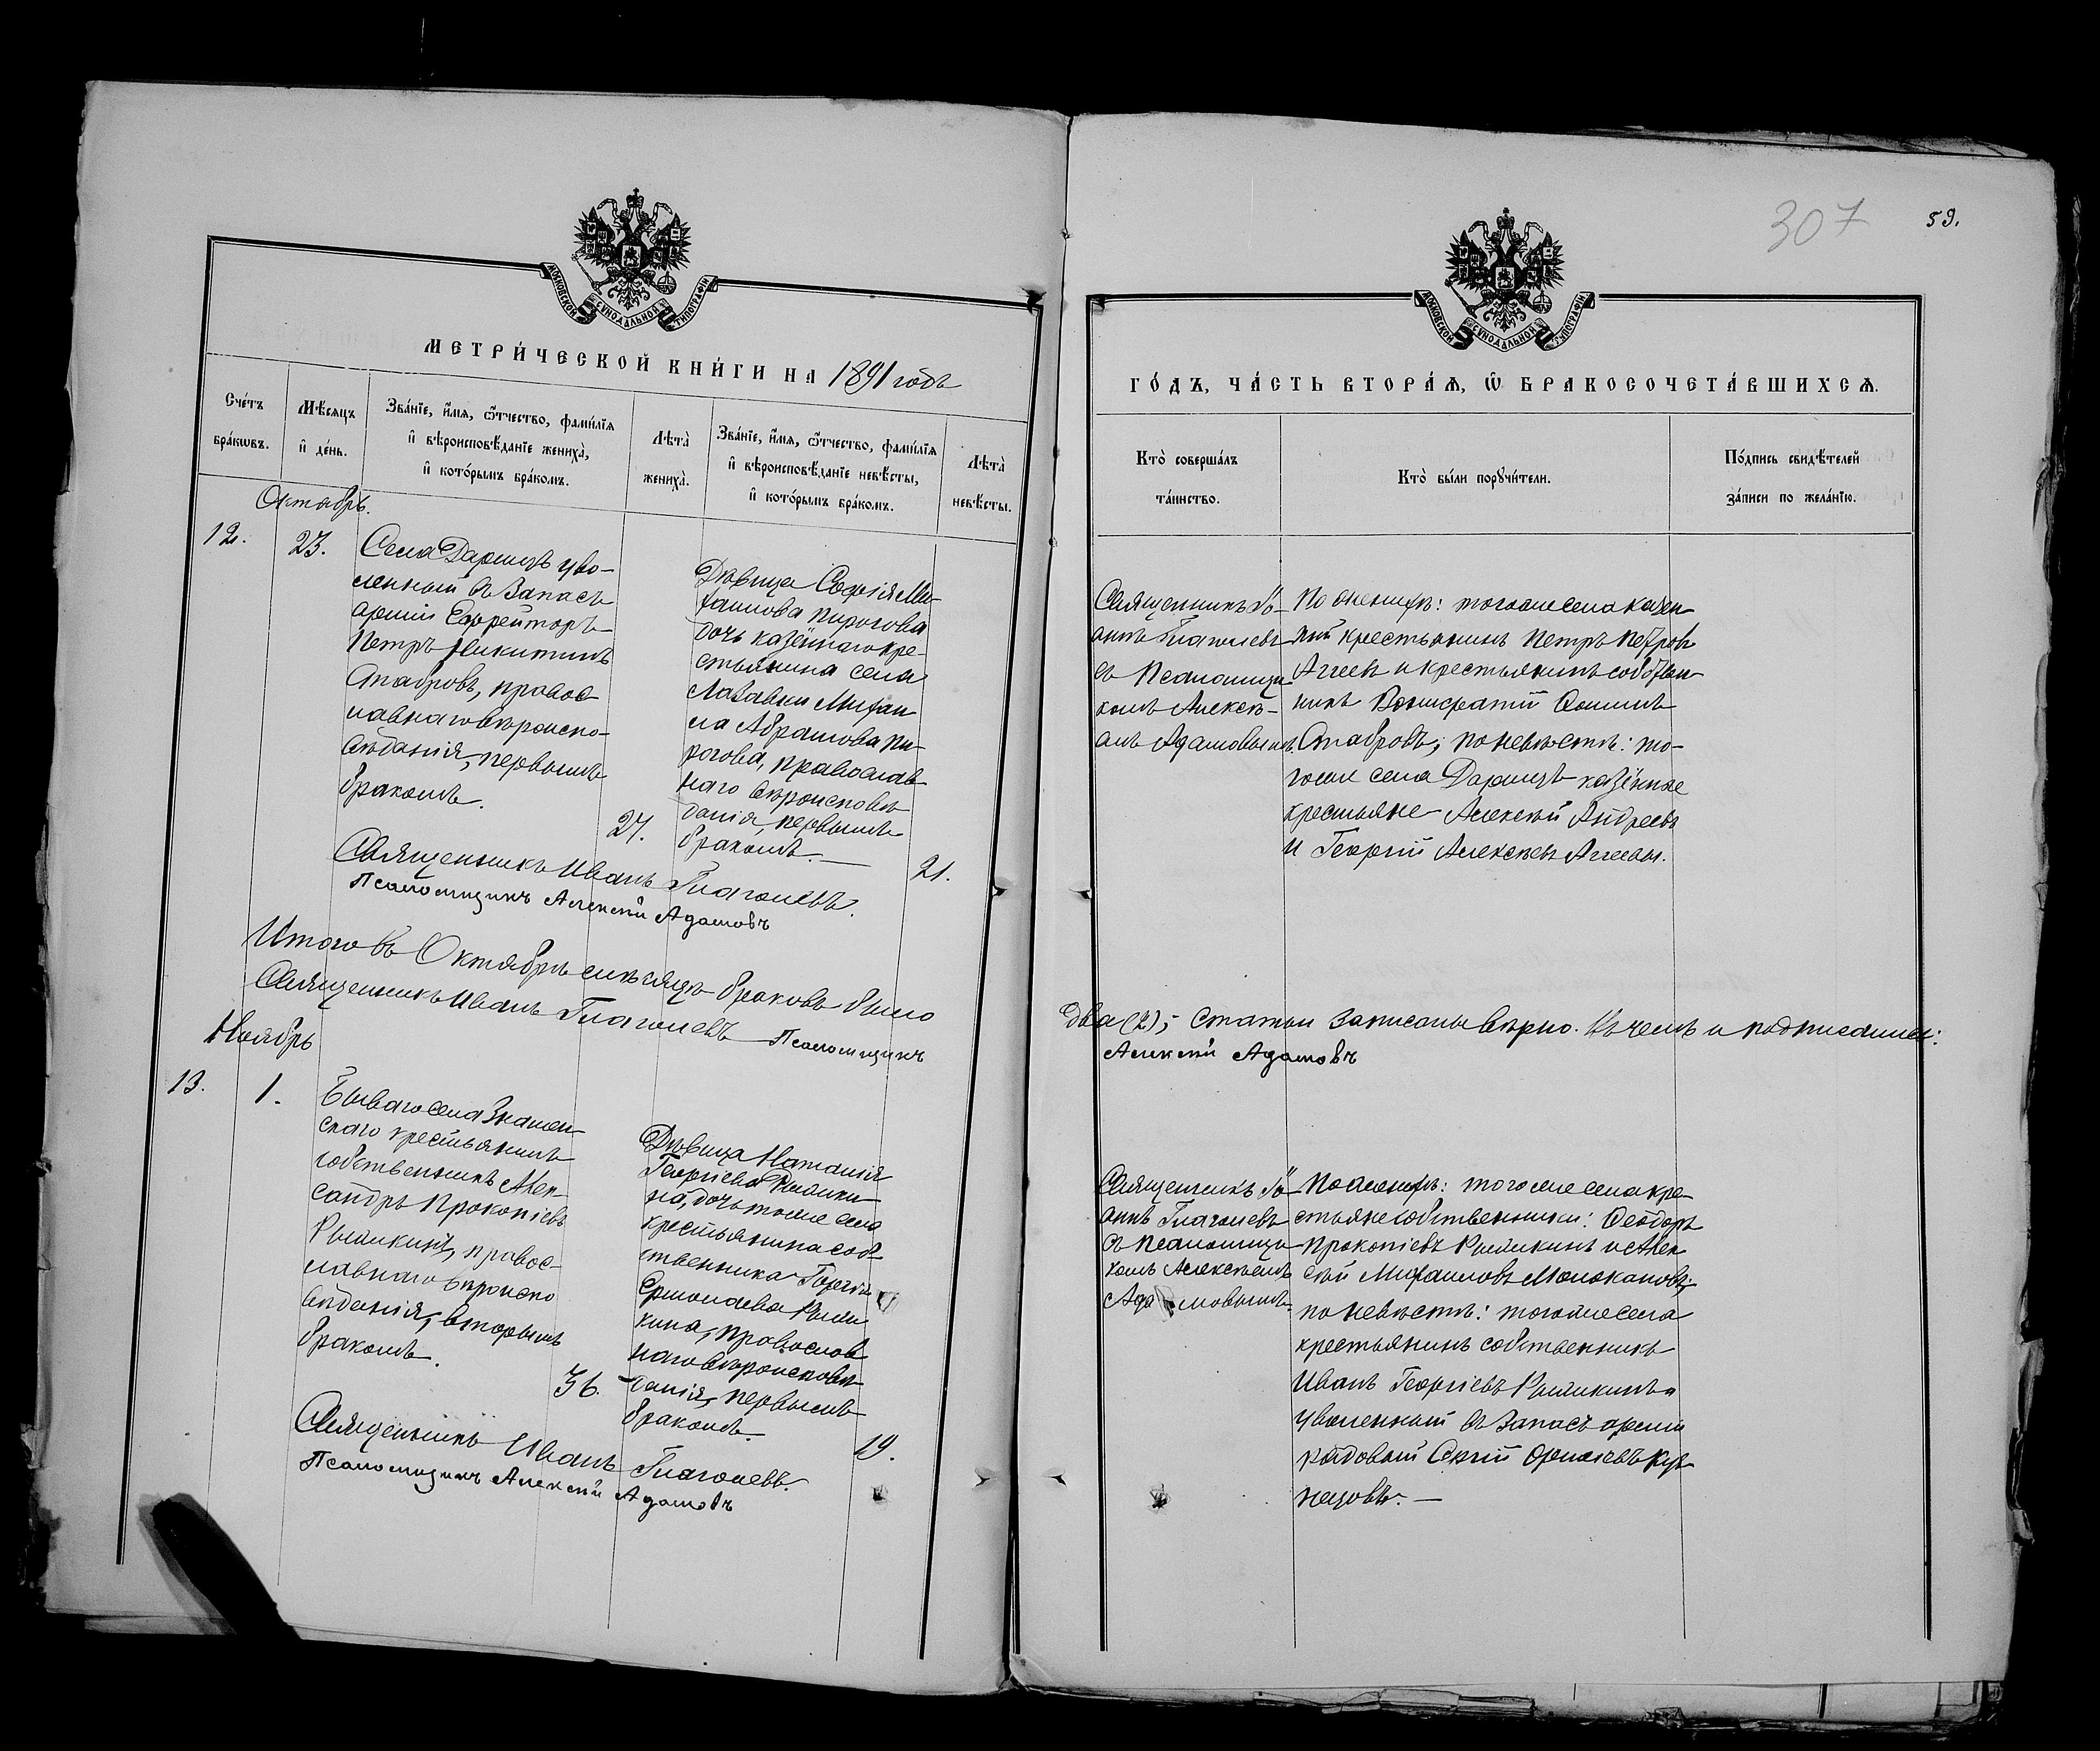 307
59.
МОСКОВСКОЙ СѴНОДАЛЬНОЙ ТИПОГРАФІИ
МЕТРИ́ЧЕСКОЙ КНИ́ГИ НА 1891 годъ
Сче́тъ бра́кωвъ.
Мѣ́сяцъ и҆ де́нь.
Зва́нїе, и҆́мѧ, ѻ҆́тчество, фами́лїѧ
и҆ вѣроисповѣ́данїе жениха̀,
и҆ кото́рымъ бра́комъ.
Лѣта̀ жениха̀.
Зва́нїе, и҆́мѧ, ѻ҆́тчество, фами́лїѧ
и҆ вѣроисповѣ́данїе невѣ́сты,
и҆ кото́рымъ бра́комъ.
Лѣта̀ невѣ́сты.
Октябрь.
12.
23.
Села Даршъ уво-
ленный въ Запасъ
арміи Ефрейторъ
Петръ Никитинъ
Стабровъ, правос
лавнаго вѣроиспо-
вѣданія, первымъ
бракомъ.
27.
Дѣвица Софія Ми-
хаилова Пирогова
дочь казённаго кре-
стьянина села
Михаи
ла Абрамова Пи-
рогова, православ
наго вѣроисповѣ
данія, первымъ
бракомъ.
21.
Священникъ Иванъ Глаголевъ.
Псаломщикъ Алексѣй Адамовъ
Итого въ Октябрѣ мѣсяцѣ браковъ было
Священникъ Иванъ Глаголевъ Псаломщикъ
Ноябрь
13.
1.
села Знамен-
скаго крестьянинъ
собственникъ Алек-
сандръ Прокопіевъ
правос-
лавнаго вѣроиспо
вѣданія, вторымъ
бракомъ.
36.
Дѣвица Наталія
Георгіева
на, дочь тогоже села
крестьянина соб-
ственника Георгія
Ермолаева
кина, православ
наго вѣроисповѣ-
данія, первымъ
бракомъ.
19.
Священникъ Иванъ Глаголевъ.
Псаломщикъ Алексѣй Адамовъ
МОСКОВСКОЙ СѴНОДАЛЬНОЙ ТИПОГРАФІИ
ГО́ДЪ, ЧА́СТЬ ВТОРА́Ѧ, Ѽ БРАКОСОЧЕТА́ВШИХСѦ.
Кто̀ соверша́лъ та́инство.
Кто̀ бы́ли порꙋчи́тели.
По́дпись свидѣ́телей за́писи по жела́нїю.
Священникъ Іо-
аннъ Глаголевъ
съ Псаломщи
комъ Алексѣ-
емъ Адамовымъ.
По женихѣ: тогоже села казён
ный крестьянинъ Петръ Петровъ
Агеевъ и крестьянинъ собствен-
никъ Вонифатій Ѳоминъ
Стабровъ; по невѣстѣ: то-
гоже села Даршъ казённые
крестьяне Алексѣй Андреевъ
и Георгій Алексѣевъ Агеевы.
два (2); статьи записаны вѣрно. Въ чемъ и подписались:
Алексѣй Адамовъ
Священникъ Іо-
аннъ Глаголевъ
съ псаломщи-
комъ Алексѣемъ
Адамовымъ.
По женихѣ: тогоже села кре-
стьяне собственники: Ѳеодоръ
Прокопіевъ и Алек
сѣй Михаиловъ Молокановъ,
по невѣстѣ: тогоже села
крестьянинъ собственникъ
Иванъ Георгіевъ и
уволенный въ Запасъ арміи
рядовой Куз-
нецовъ.